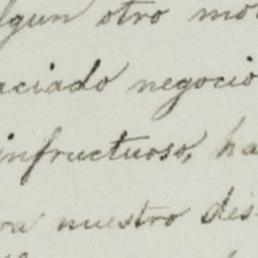 lgun otro mo
aciado negocio
infructuoso, ha
ra nuestro des